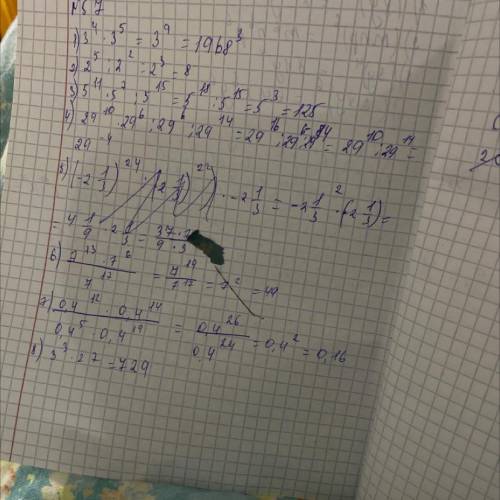 №57
1) 3⁴ · 3⁵ = 3⁹ = 19683
2) 2⁵ : 2² = 2³ = 8
3) 5¹⁴ · 5² : 5¹⁵ = 5¹⁸ : 5¹⁵ = 5³ = 125
4) 29¹⁰ · 29⁶ : 29⁶ : 29¹⁴ = 29¹⁶ : 29¹⁴ = 29¹⁰ : 29¹⁴ =
29⁻⁴
5) (-2 1/3)²⁴ : (2 1/3)²² · -2 1/3 = -2 1/3² · (-2 1/3) =
= 4 1/9 · 2 1/3 = 37 · / 9 · 3
6) 7¹³ · 7⁶ / 7¹⁷ = 7¹⁹ / 7¹⁷ = 7² = 49
7) 0,4¹² · 0,4¹⁴ / 0,4⁵ · 0,4¹⁹ = 0,4²⁶ / 0,4²⁴ = 0,4² = 0,16
8) 3³ · 27 = 729